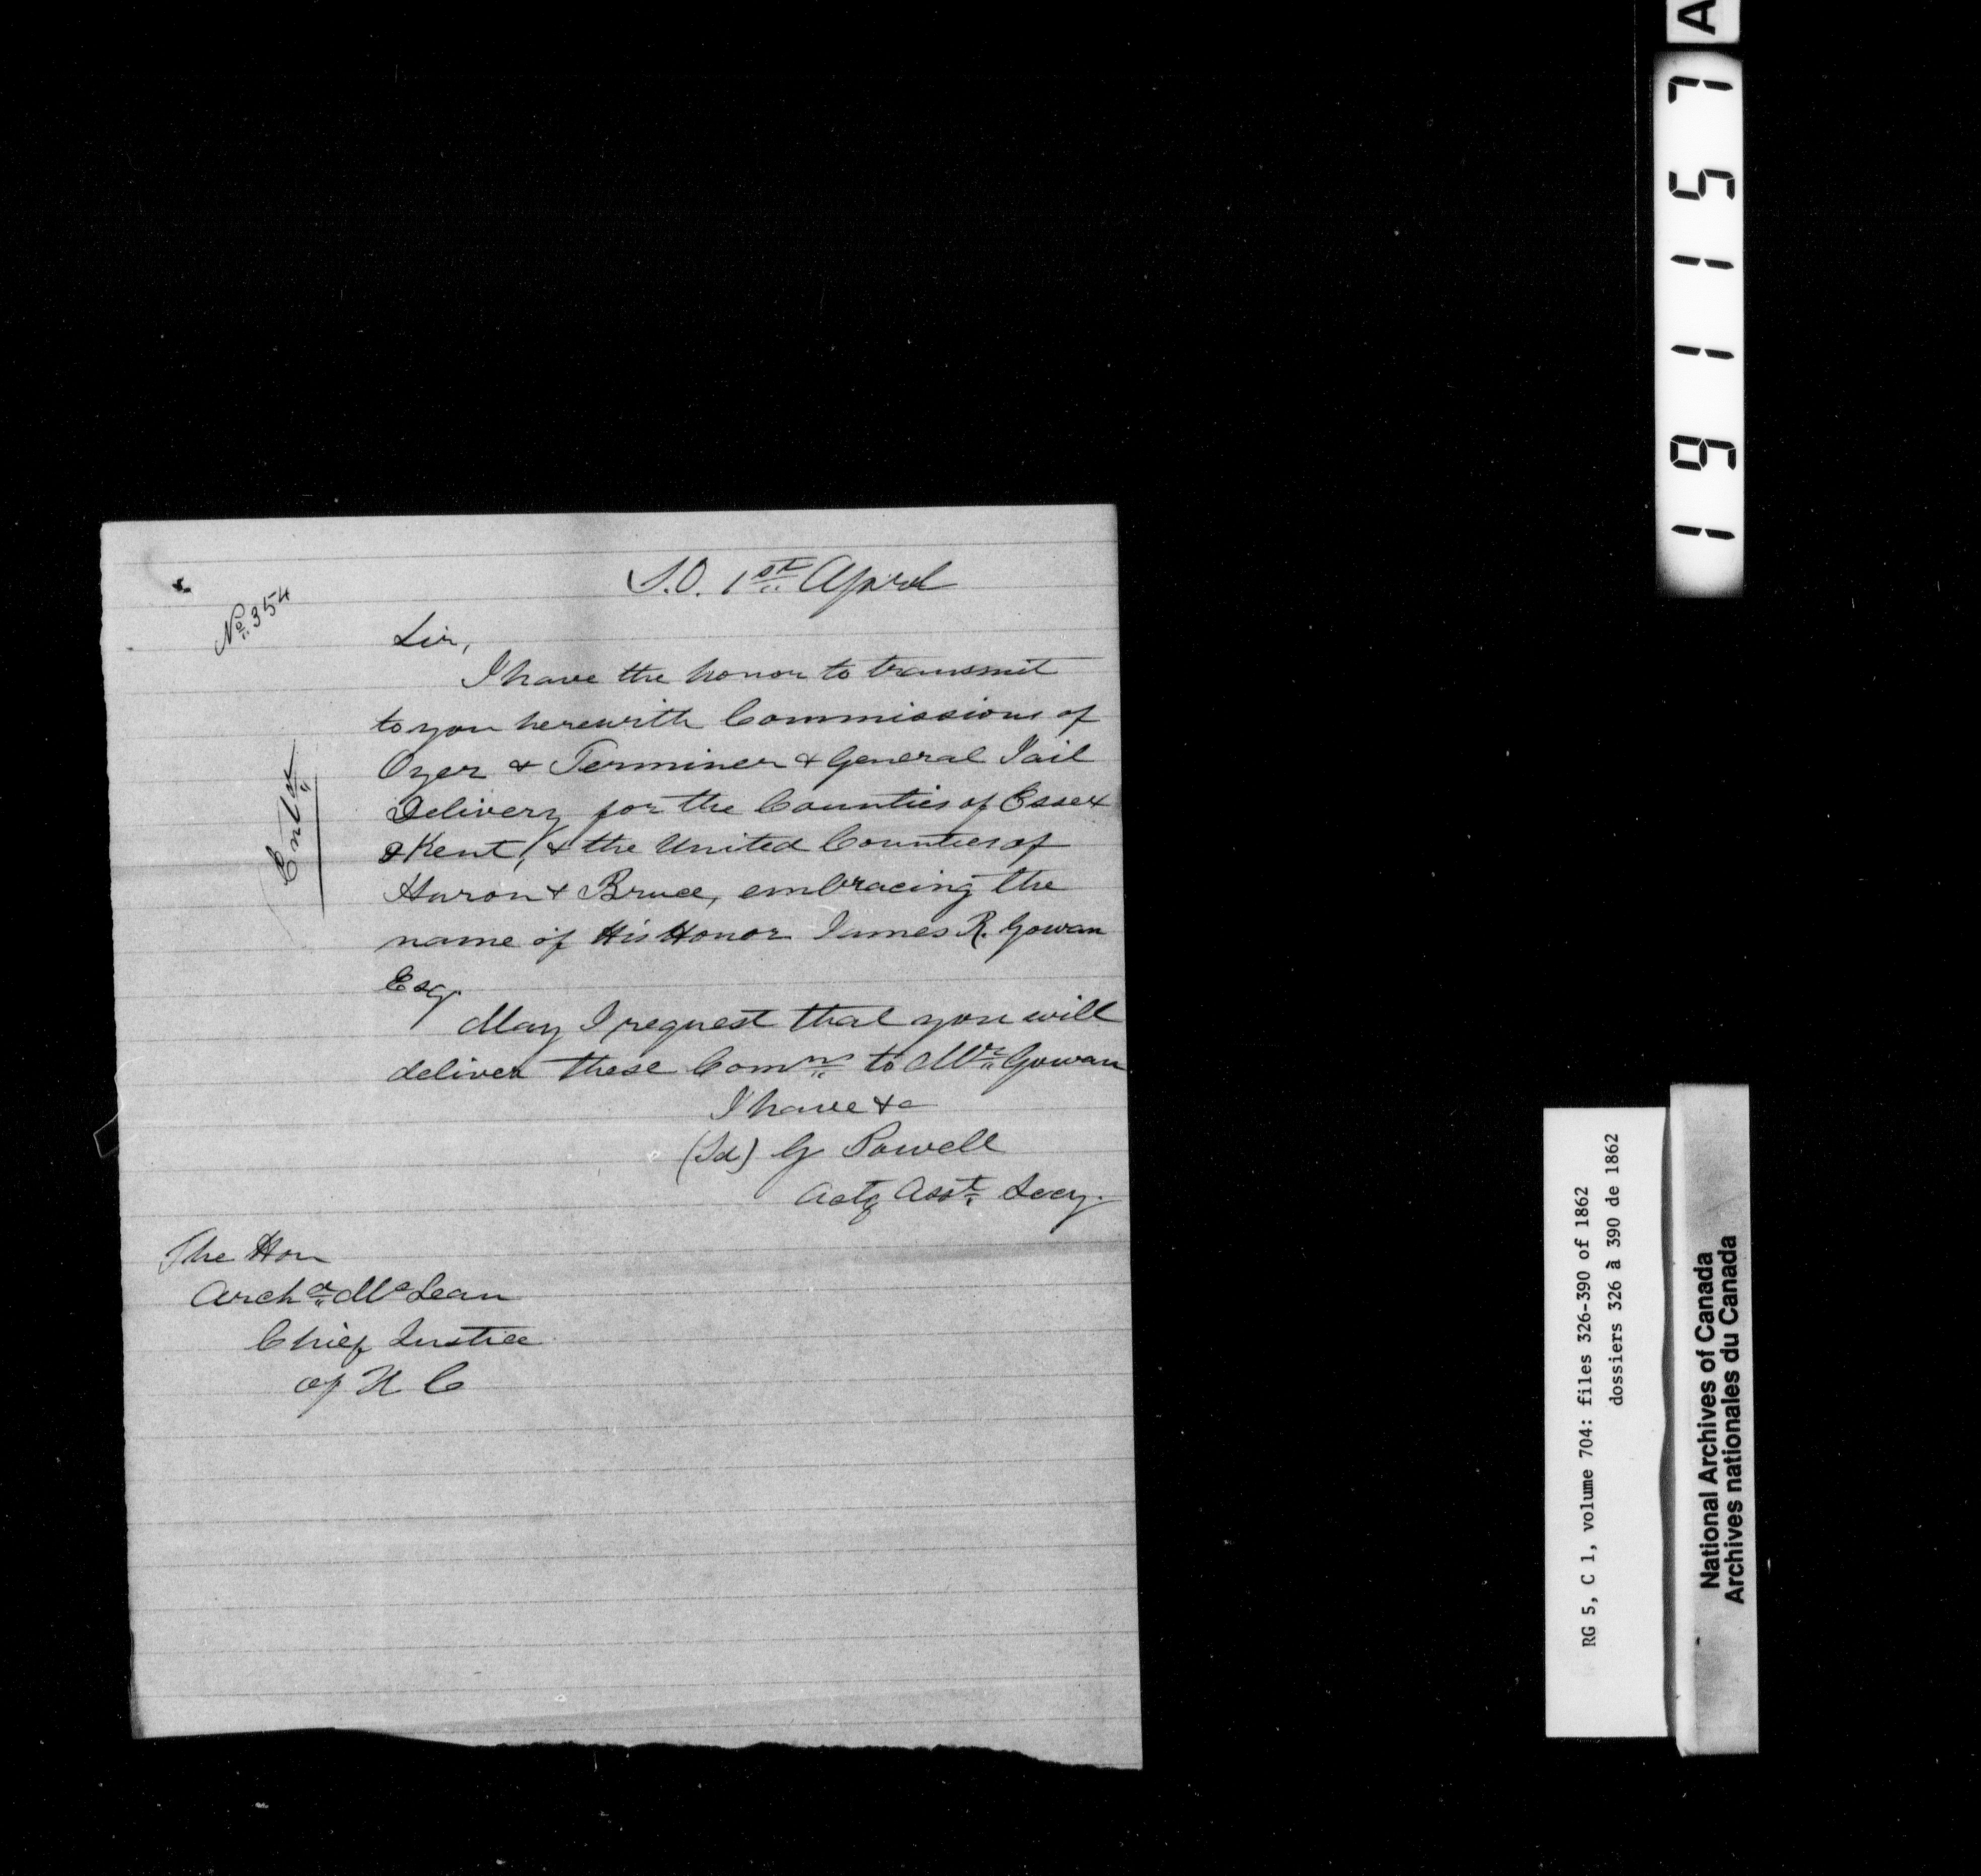 S.O. 1st April
No. 354
Sir,
I have the honor to transmit
to you herewith Commissions of
Oyer & Terminer & General Jail
Delivery for the Counties of Essex
& Kent, & the United Counties of
Huron & Bruce, embracing the
name of His Honor James R. Gowan
Esq.
May I request that you will
deliver these Comns to Mr. Gowan
I have &c
(Sd) G Powell
Actg Asst. Secy.
The Hon
Archd McLean
Chief Justice
of U C
A
191157
RG 5, C 1, volume 704: files 326-390 of 1862
dossiers 326 à 390 de 1862
National Archives of Canada
Archives nationales du Canada